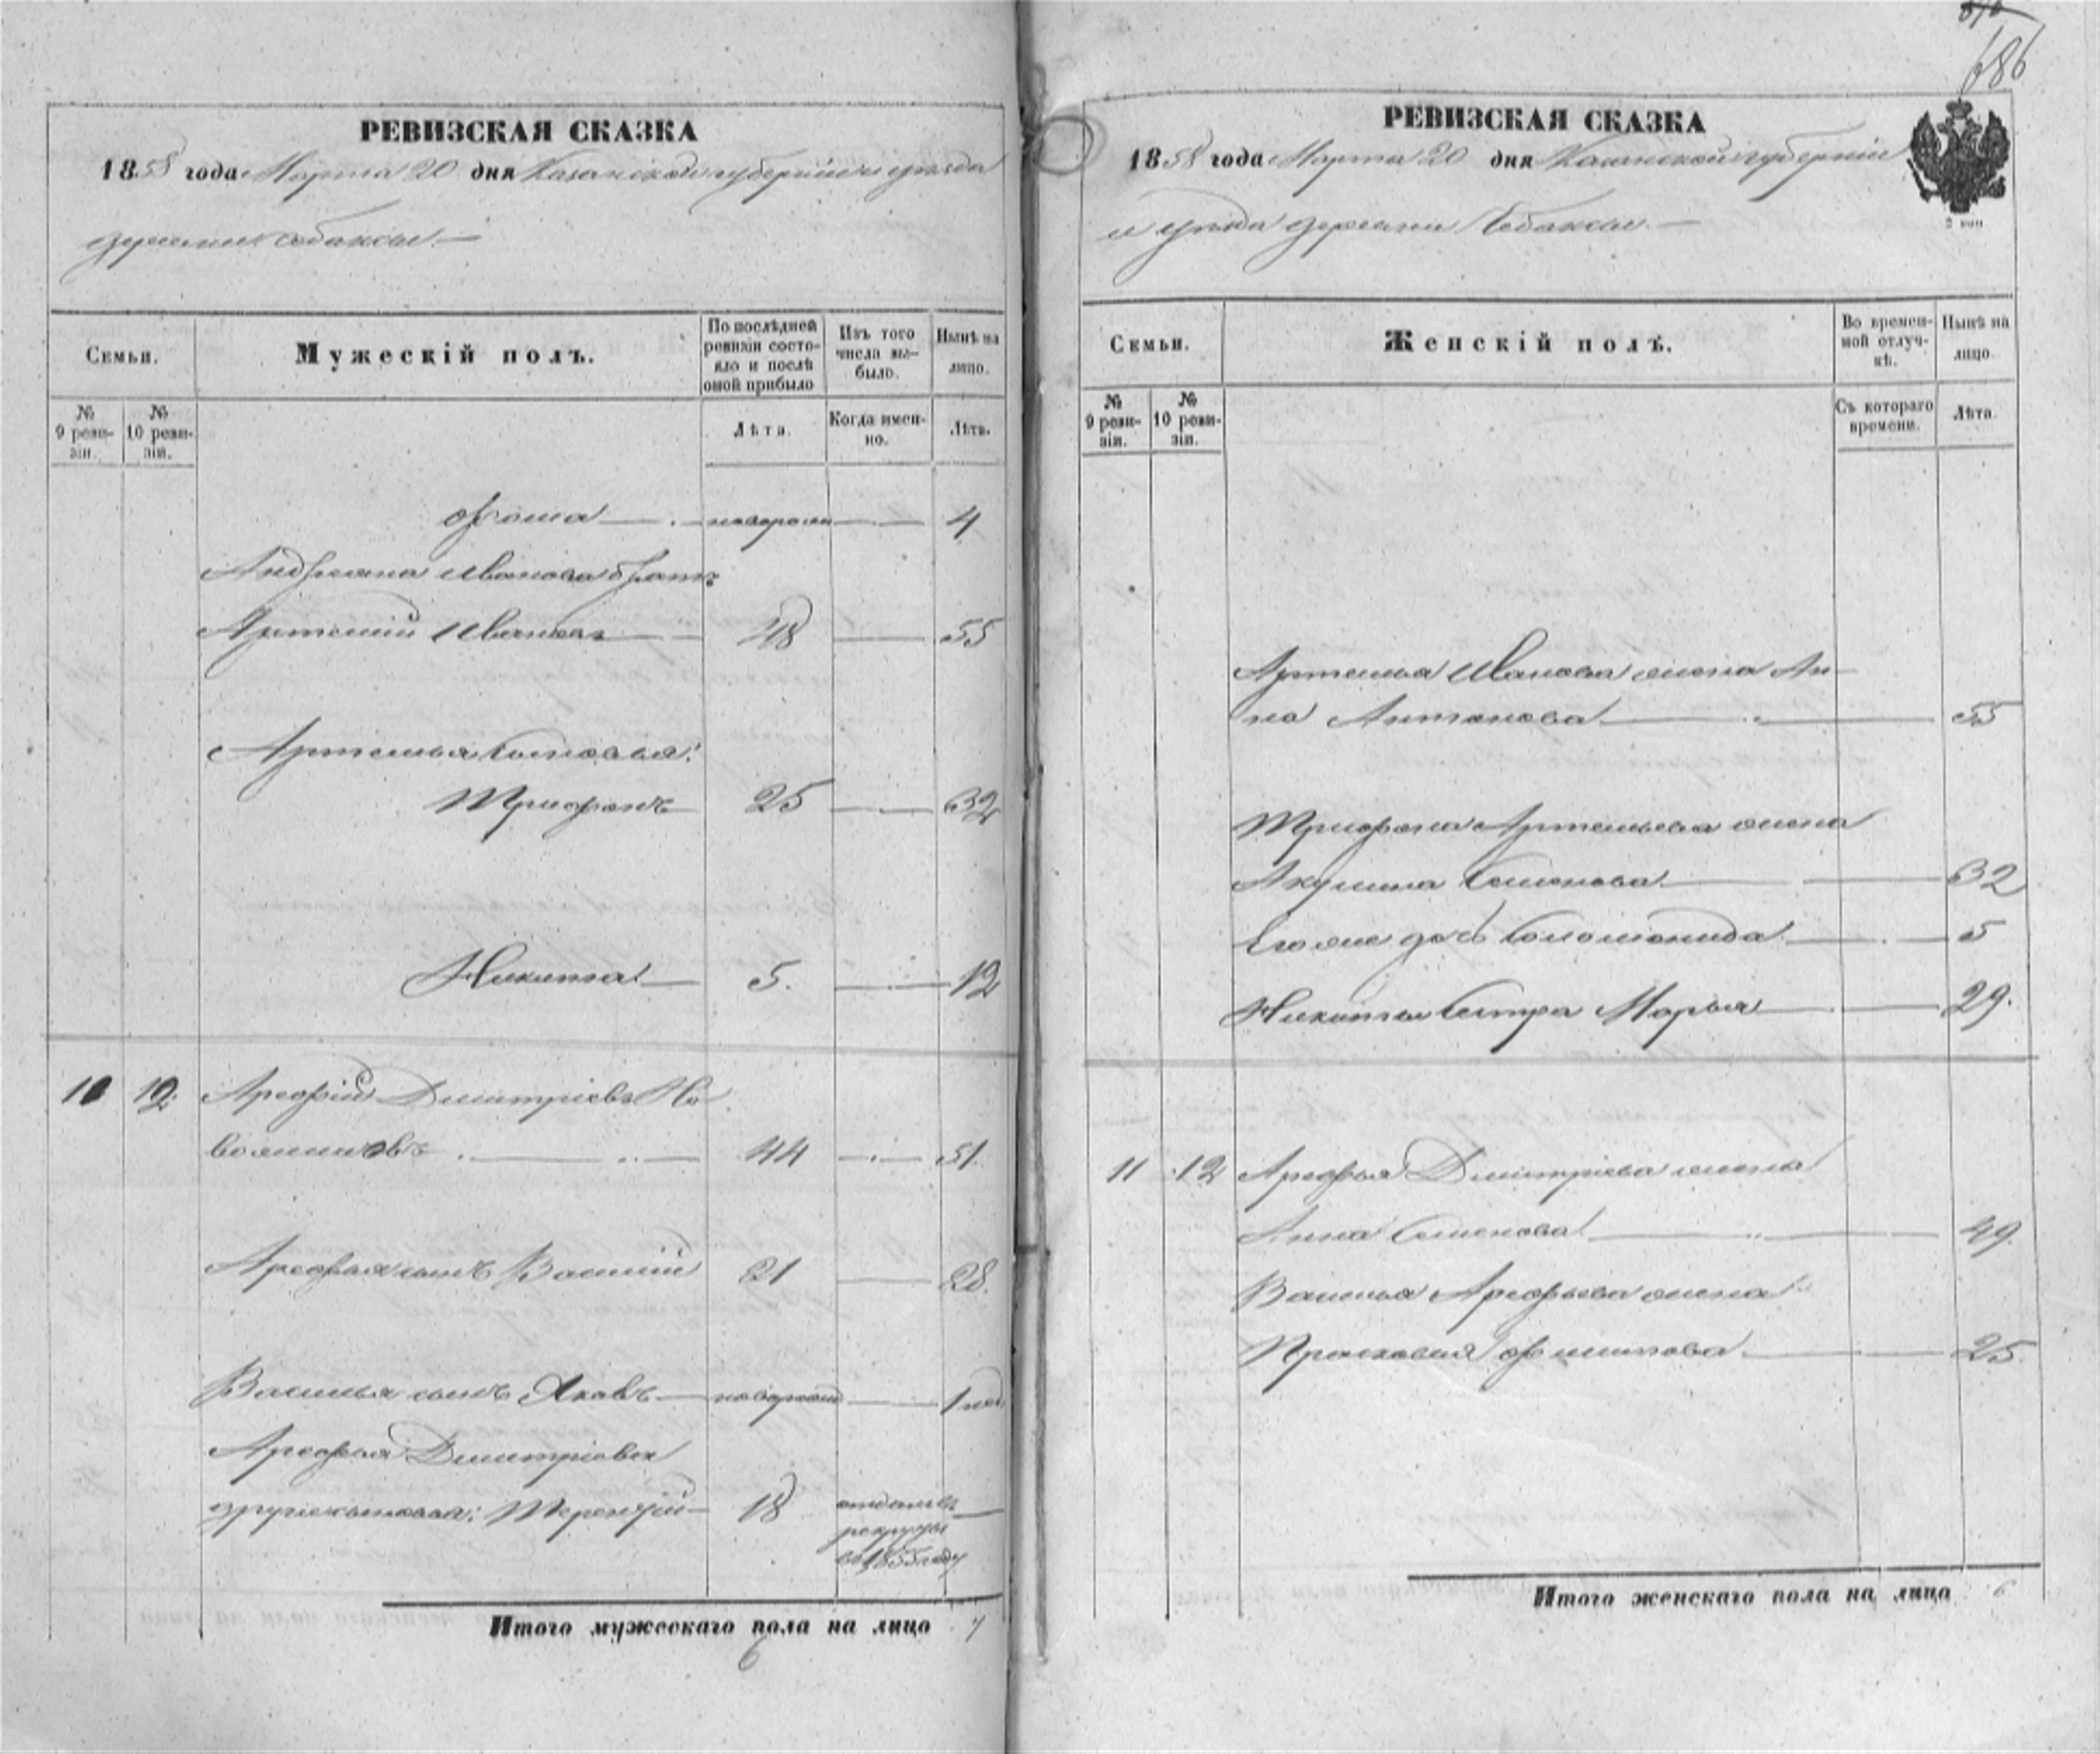 РЕВИЗСКАЯ СКАЗКА
1858 года Марта 20 дня Казанской губерніи и уѣзда
деревни Собаксы.
Семьи.
Мужескій полъ.
По послѣдней ревизіи состояло и послѣ оной прибыло
Изъ того числа выбыло.
Нынѣ на лицо.
№ 9 ревизіи.
№ 10 ревизіи.
Лѣта.
Когда именно.
Лѣта.
Фома новорожд 4
Андреяна Иванова братъ
Артемій Ивановъ 48 55
Артемья сыновья:
Трифонъ 25 32
Никита 5. 12
11 12 Арефій Дмитріевъ Но
44 51.
Арефья сынъ Василій 21 28.
Василья сынъ Яковъ новорожд 1 нед
Арефья Дмитріева
Терентій 18 отданъ въ
рекруты
въ 1855 году
Итого мужескаго пола на лицо 7
6
686
РЕВИЗСКАЯ СКАЗКА
1858 года Марта 20 дня Казанской губерніи
и уѣзда деревни Собаксы.
2 коп
Семьи.
Женскій полъ.
Во временной отлучкѣ.
Нынѣ на лицо.
№ 9 ревизіи.
№ 10 ревизіи.
Съ котораго времени.
Лѣта.
Артемья Иванова жена Ан-
на Антонова 55
Трифона Артемьева жена
Акулина Семенова 32
Его же дочь Соломонида 5
Никиты сестра Марья 29.
11 12 Арефья Дмитріева жена
Анна Семенова 49.
Василья Арефьева жена
Прасковья Филипова 25.
Итого женскаго пола на лицо 6